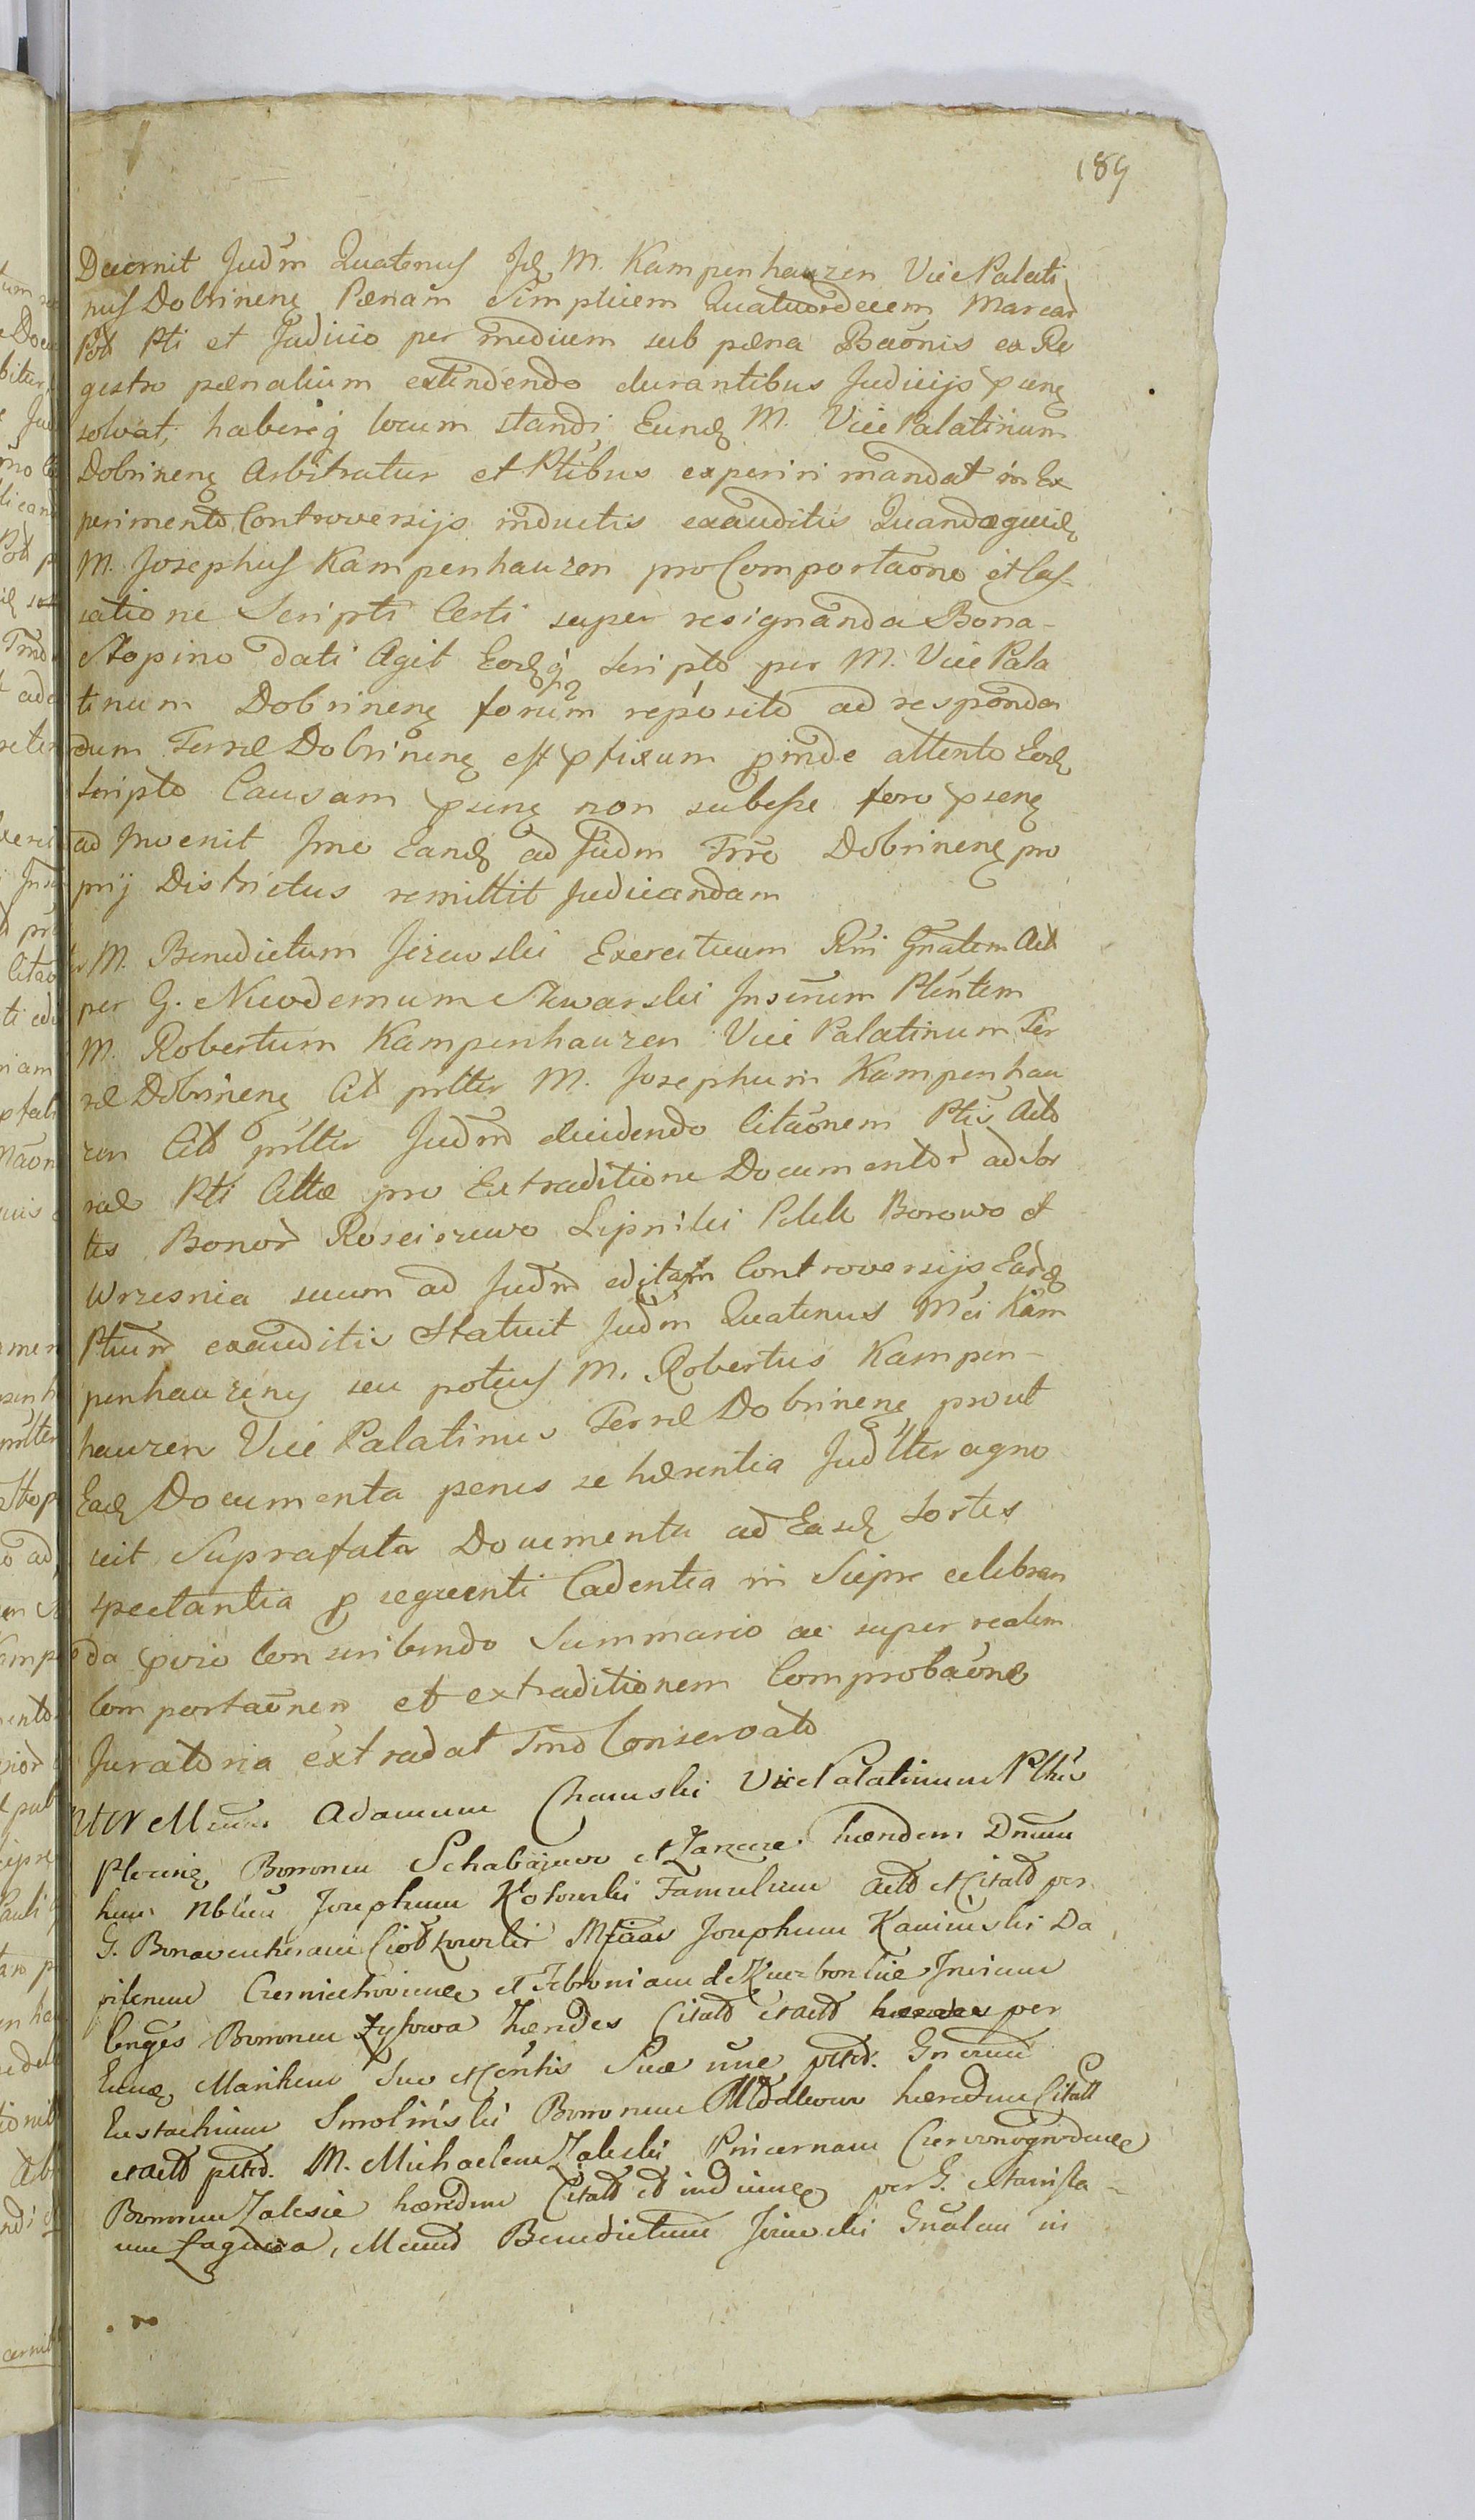 189
Decernit Judm̃ Quatenus Jdę M. Kampenhauzen Vice Palati
nus Dobrinenę Pænam Simplicem Quatuordecem Marcar
Pot Pti et Judicio per medium sub pæna Baõnis ex Re
gestro pænalium extendendo durantibus Judicijs psenę
solvat, habereq̃ locum standi Eundę M. Vice Palatinum
Dobrinenę Arbitratur et Ptibus experiri mandat in Ex
perimento Controversijs inductis exauditis Quandoquidę
M. Josephus Kampenhauzen pro Comportaõne et Cas-
satione Scripti Certi super resignanda Bona-
Stopino dati Agit Eodęq̃ Scripto per M. Vice Pala
tinum Dobrinenę forum reposito ad responden
dum Terræ Dobrinenę est pfixum pinde attento Eodę
Scripto Causam psenę non subesse foro psenę
ad Jnvenit Jmo Eandę ad Judm Trræ Dobrinenę pro
prij Districtus remittit Judicandam
M. Benedictum Jezewski Exercituum Rni Gnatem Act
per G. Nicodemum Skwarski Jnscrum Plentem
M. Robertum Kampenhauzen Vice Palatinum Ter
ræ Dobrinenę Cit prltter M. Josephum Kampenhau
zen Citt prltter Judm̃ decidendo Citaõnem Ptis Acto
ræ Pti Cittæ pro Extraditione Documentor̃ ad Sor
tes Bonor̃ Rosciszewo Lipniki Borowo et
Wrzesnia suum ad Judm̃ editam Controversijs Eardę
Ptium exauditis Statuit Judm̃ Quatenus Mci Kam
penhauzeny seu potius M. Robertus Kampen-
hauzen Vice Palatinus Terræ Dobrinenę prout
Eadę Documenta penes se hærentia Judltter agno
vit Suprafata Documenta ad Easdę Sortes
spectantia p sequenti Cadentia in Siepre celebran
da pvio Conscribendo Summario ac super realem
Comportaõnem et extraditionem Comprobaõne
Juratoria extradat Tmo Conservato
Adamum Chamski Vice Palatinum
Plocenę Bonorum et hæredem Dnum
hum Nblem Josephum Kotowski Famulum Actt et Citatt per
G. Bonaventuram Ciotkowski Josephum Kaminski Da
piferum et Febroniam de Jnvicem
Conges Bonorum Zysowa hæredes Citatt et actt per
Eundę Maritum Suo et Contis Suæ nne prttd. Gnerum
Eustachium Smolinski Bonorum hæredem Citatt
et actt prttd. M. Michaelem Zaleski Pincernam Czerwonogrodenę
Bonorum Zalesie hæredem Citatt per G. Stanisla-
um Laguna, Mcum Benedictum Jezewski Gnalem in